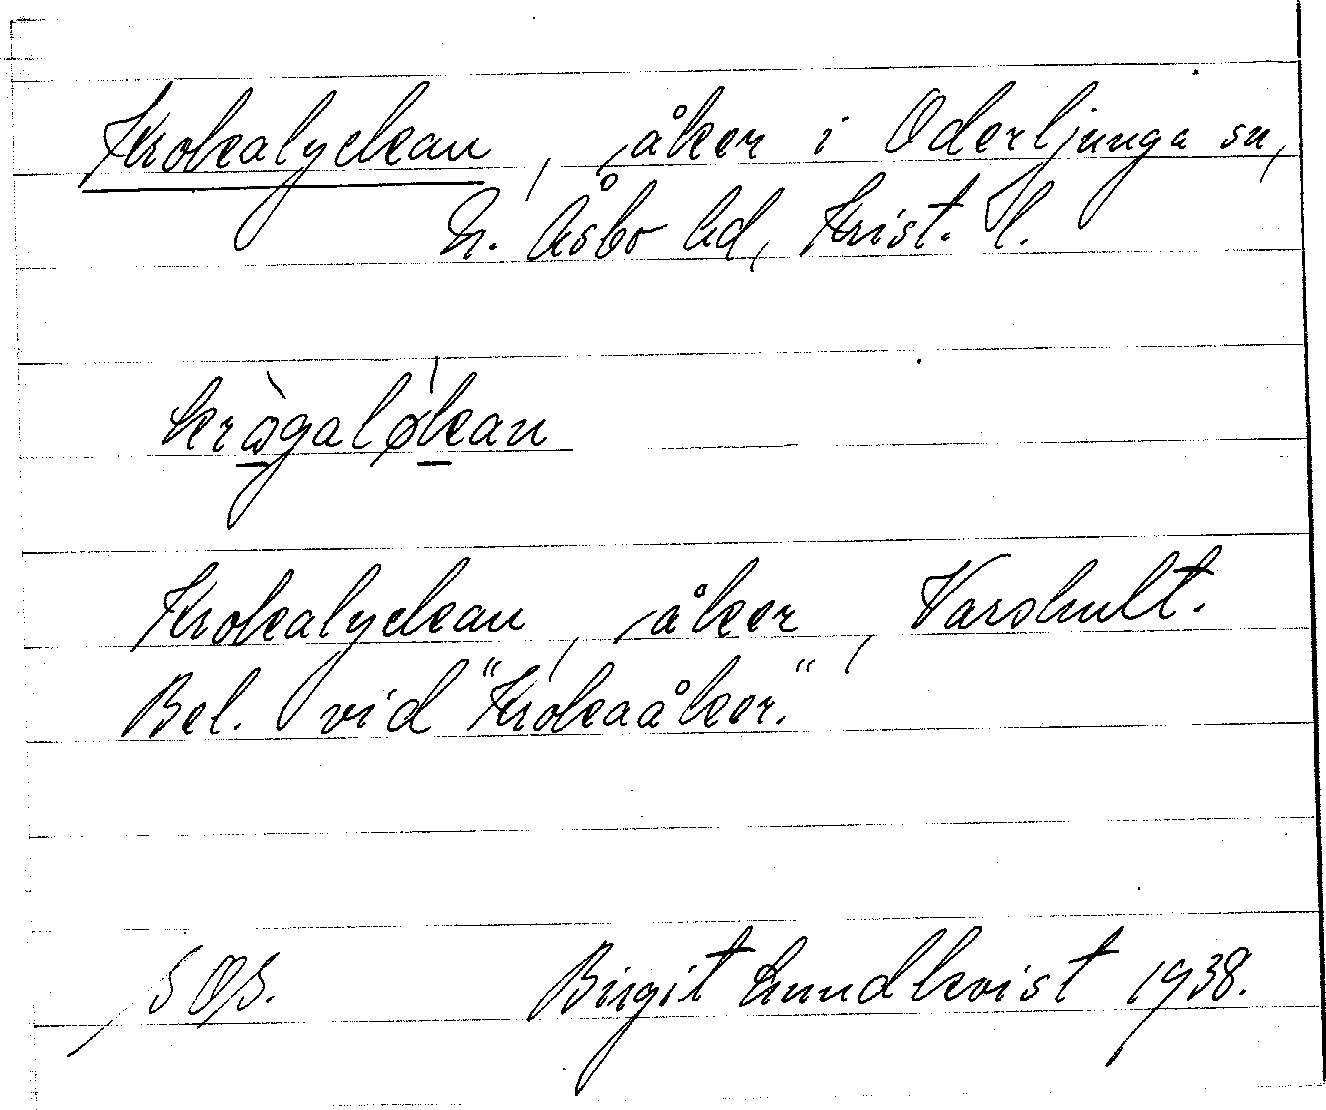 Krokalyckan, åker i Oderljunga sn,
N. Åsbo hd, Krist. l.
krògaløkan
Krokalyckan, åker, Varshult.
Bel. vid "Krokaåker."
SOS. Birgit Lundkvist 1938.